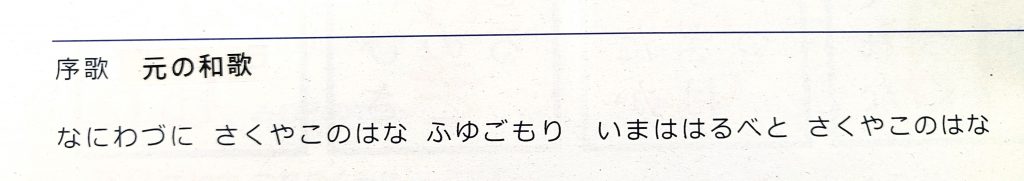 序歌　元の和歌
なにわづに さくやこのはな ふゆごもり　いまははるべと さくやこのはな